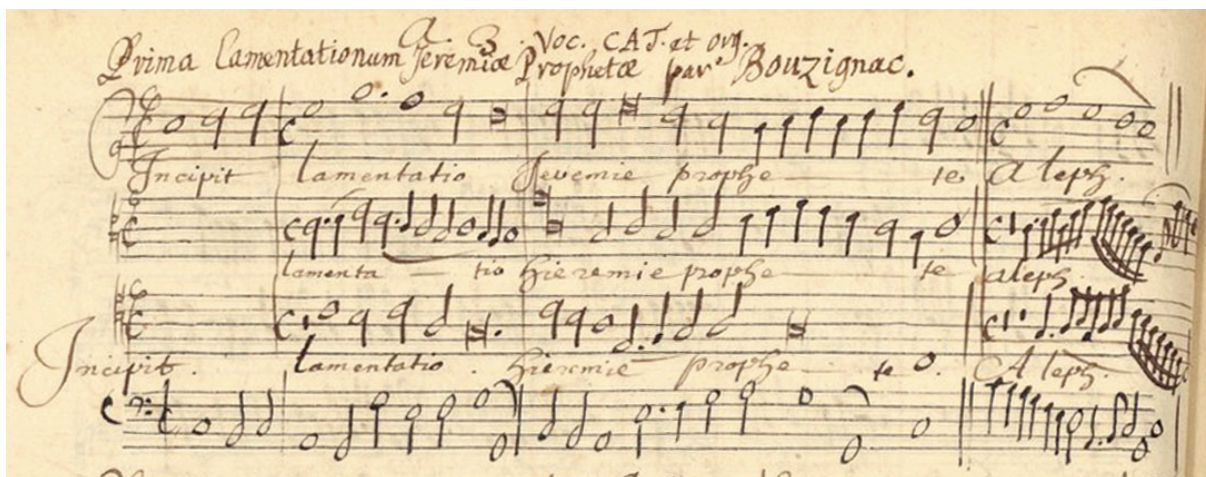 A. 3. Voc. CAT. et org.
Prima Lamentationum Jeremiæ Prophetæ par Bouzignac.
Incipit lamentatio Jeremie prophe te Aleph.
lamenta tio hieremie prophe te aleph
Incipit. lamentatio. hieremie prophe te. Aleph.